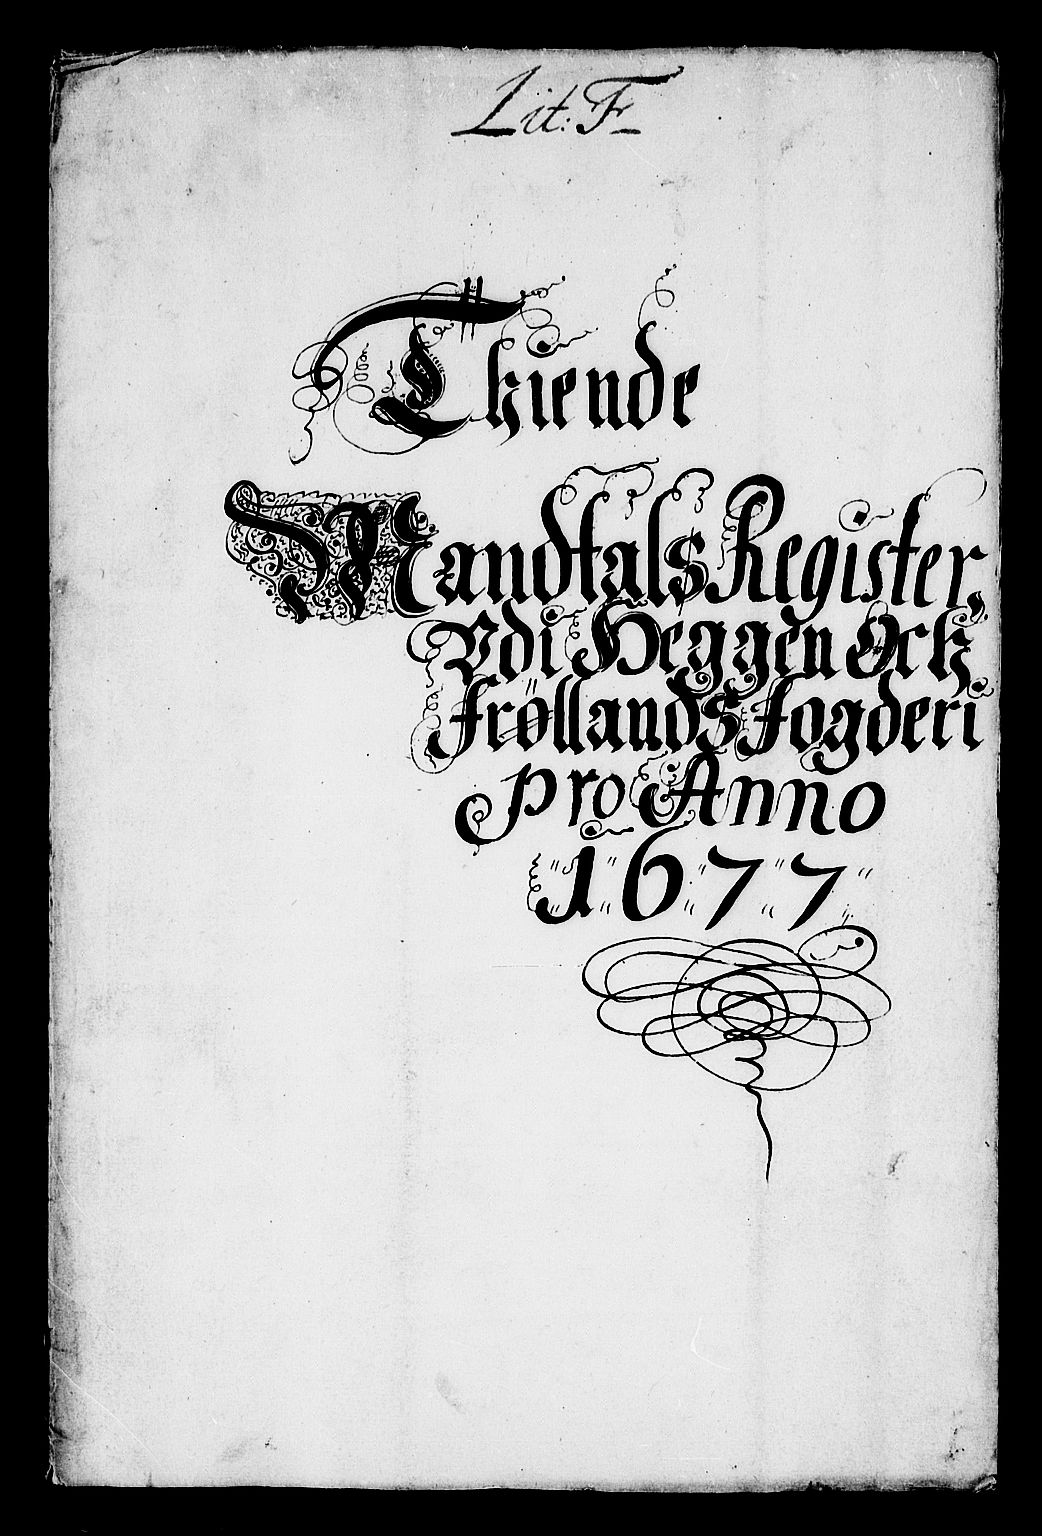 Lit: F
Thiende
Mandtals Register,
Vdi Heggen Ock
Frøllands Fogderi
pro Anno
1677